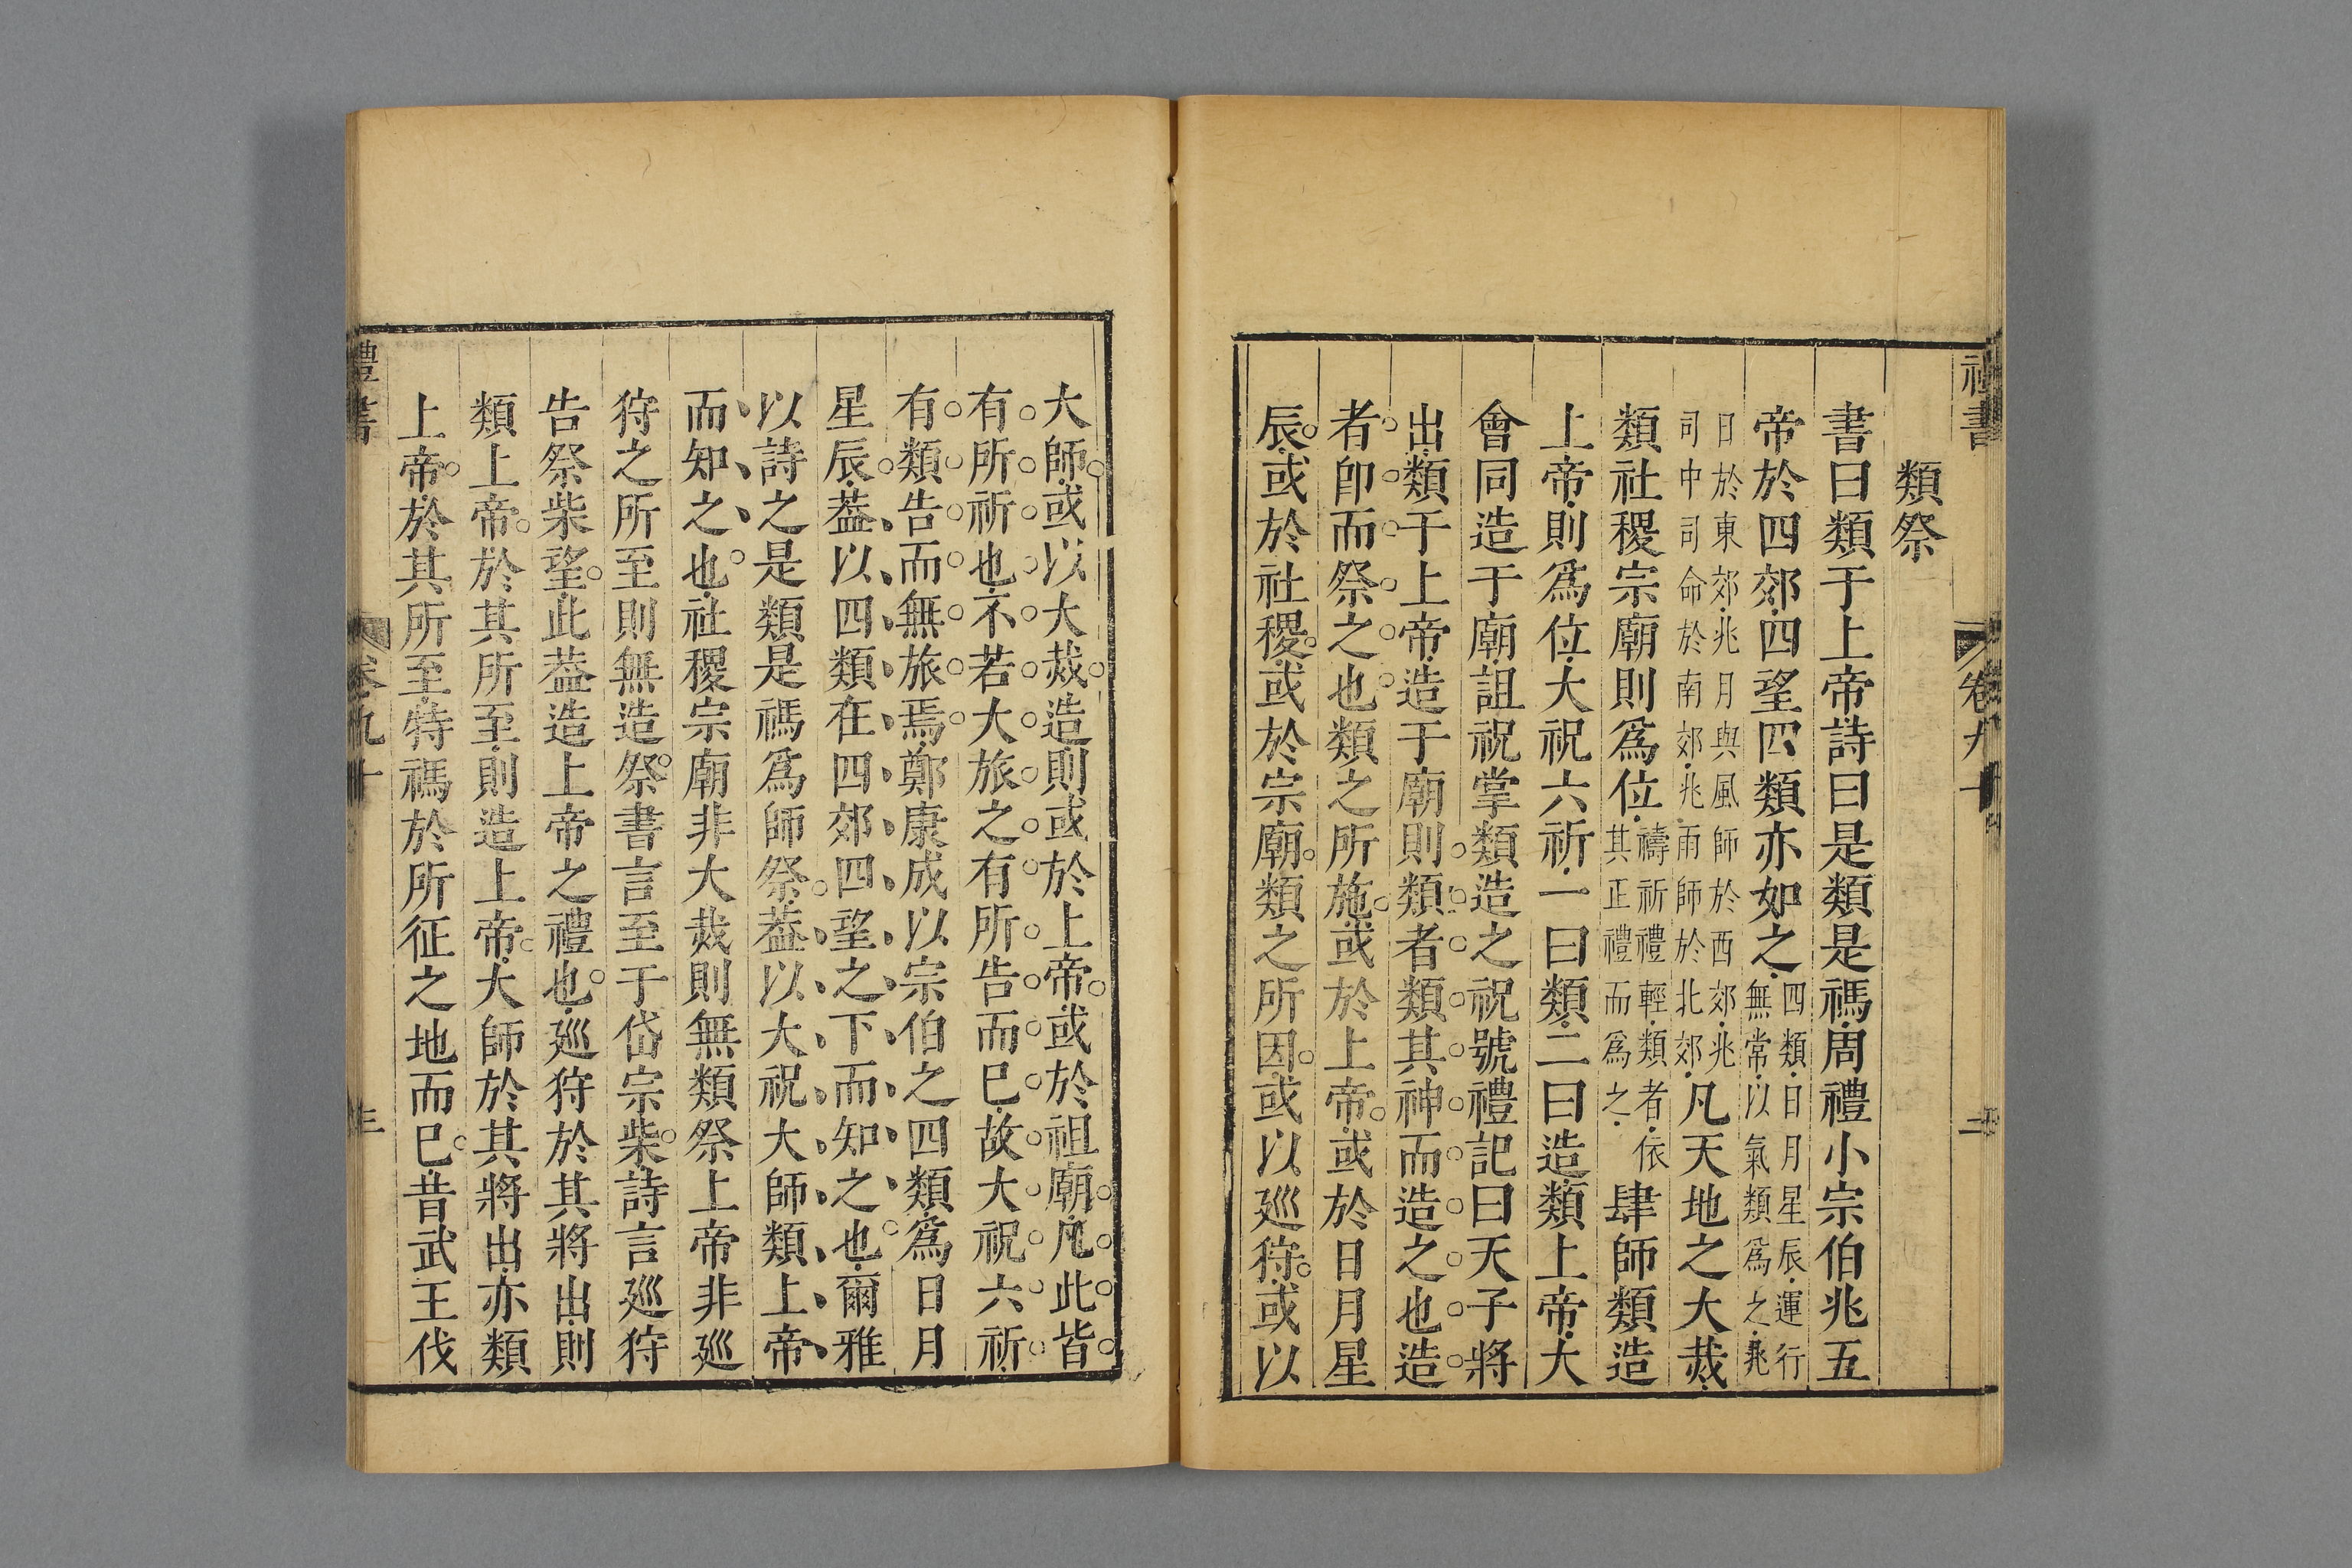 禮書
卷九十
二
類祭
書曰類于上帝詩曰是類是禡周禮小宗伯兆五
帝於四郊四望四類亦如之四類日月星辰運行
無常以氣類爲之兆
日於東郊兆月與風師於西郊兆
司中司命於南郊兆雨師於北郊凡天地之大烖
類社稷宗廟則爲位禱祈禮輕類者依
其正禮而爲之肆師類造
上帝則爲位大祝六祈一曰類二曰造類上帝大
會同造于廟詛祝掌類造之祝號禮記曰天子將
出類于上帝造于廟則類者類其神而造之也造
者卽而祭之也類之所施或於上帝或於日月星
辰或於社稷或於宗廟類之所因或以巡狩或以
大師或以大烖造則或於上帝或於祖廟凡此皆
有所祈也不若大旅之有所告而巳故大祝六祈
有類告而無旅焉鄭康成以宗伯之四類爲日月
星辰葢以四類在四郊四望之下而知之也爾雅
以詩之是類是禡爲師祭葢以大祝大師類上帝
而知之也社稷宗廟非大烖則無類祭上帝非巡
狩之所至則無造祭書言至于岱宗柴詩言巡狩
告祭柴望此葢造上帝之禮也巡狩於其將出則
類上帝於其所至則造上帝大師於其將出亦類
上帝於其所至特禡於所征之地而巳昔武王伐
禮書
卷九十
三